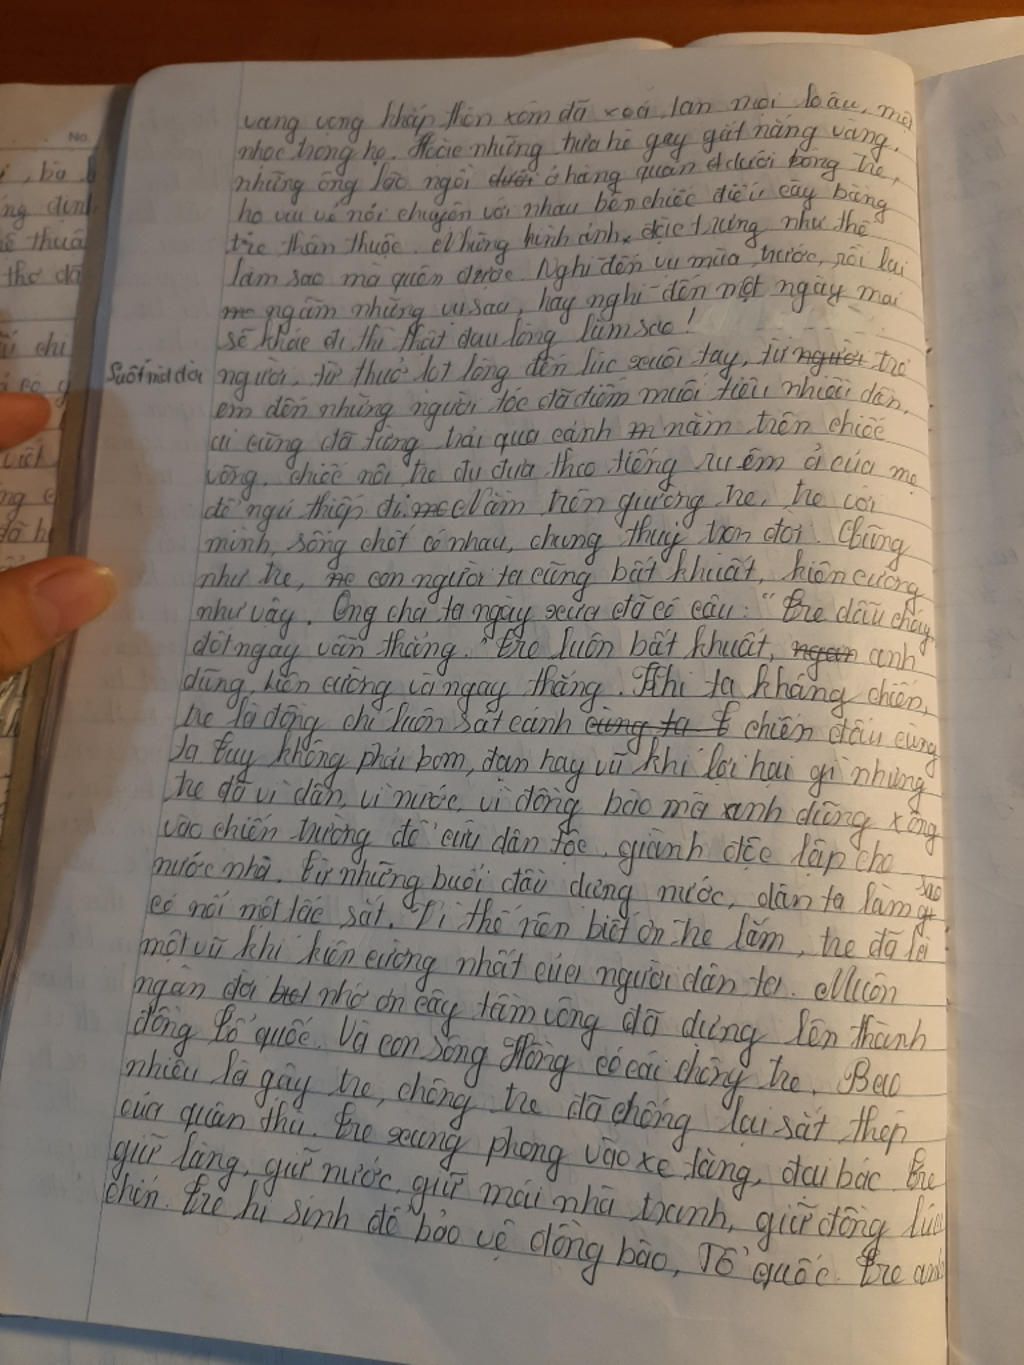 vang vọng khắp thôn xóm đã xoá tan mọi lo âu, mệt
nhọc trong họ. Hoặc những trưa hè gay gắt nắng vàng,
những ông lão ngồi dưới ở hàng quán ở dưới bóng tre,
họ vui vẻ nói chuyện với nhau bên chiếc điếu cày bằng
tre thân thuộc. Những hình ảnh đặc trưng như thế
làm sao mà quên được. Nghĩ đến vụ mùa trước, rồi lại
ngâm những vụ sau, hay nghĩ đến một ngày mai
sẽ khác đi thì thật đau lòng làm sao!
Suốt một đời người, từ thuở lọt lòng đến lúc xuôi tay, từ người trẻ
em đến những người tóc đã điểm muối tiêu nhiều dần,
ai cũng đã từng trải qua cảnh nằm trên chiếc
võng, chiếc nôi tre đu đưa theo tiếng ru êm ả của mẹ
để ngủ thiếp đi. Nằm trên giường tre, tre với
mình, sống chết có nhau, chung thuỷ trọn đời. Cũng
như tre, con người ta cũng bất khuất, kiên cường
như vậy. Ông cha ta ngày xưa đã có câu: "Tre dẫu cháy
đốt ngay vẫn thẳng." Tre luôn bất khuất, ngan anh
dũng, kiên cường và ngay thẳng. Khi ta kháng chiến,
tre là đồng chí luôn sát cánh cùng ta chiến đấu cùng
ta. Tuy không phải bom, đạn hay vũ khí lợi hại gì nhưng
tre đã vì dân, vì nước, vì đồng bào mà anh dũng xông
vào chiến trường để cứu dân tộc, giành độc lập cho
nước nhà. Từ những buổi đầu dựng nước, dân ta làm gì sao
có nổi một tấc sắt. Vì thế nên biết ơn tre lắm, tre đã là
một vũ khí kiên cường nhất của người dân ta. Muôn
ngàn đời biết nhớ ơn cây tầm vông đã dựng lên thành
đồng Tổ quốc. Và con sông Hồng có cái chông tre. Bao
nhiêu là gậy tre, chông tre đã chống lại sắt thép
của quân thù. Tre xung phong vào xe tăng, đại bác. Tre
giữ làng, giữ nước, giữ mái nhà tranh, giữ đồng lúa
chín. Tre hi sinh để bảo vệ đồng bào, Tổ quốc. Tre anh